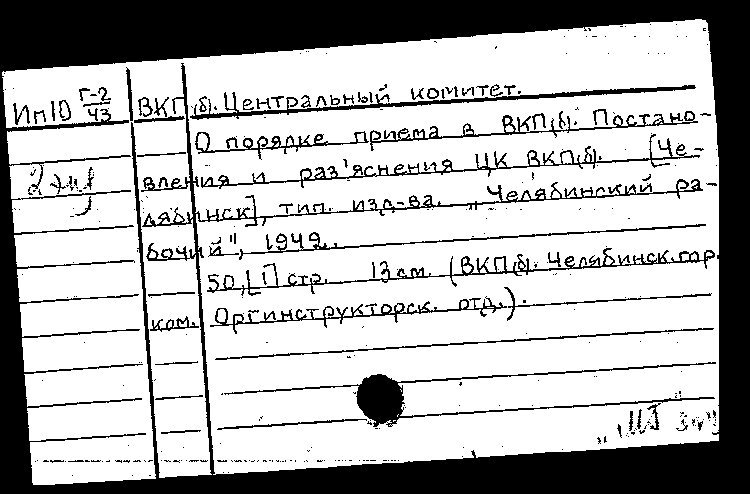 Ип10 Г-2/43 ВКП(б). Центральный комитет.
О порядке приема в ВКП(б). Постано-
2 экз
вления и раз'яснения ЦК ВКП(б). [Че-
лябинск], тип. изд-ва. „Челябинский ра-
бочий", 1942.
50,[1] стр. 13 см. (ВКП(б). Челябинск. гор.
ком. Оргинструкторск. отд.).